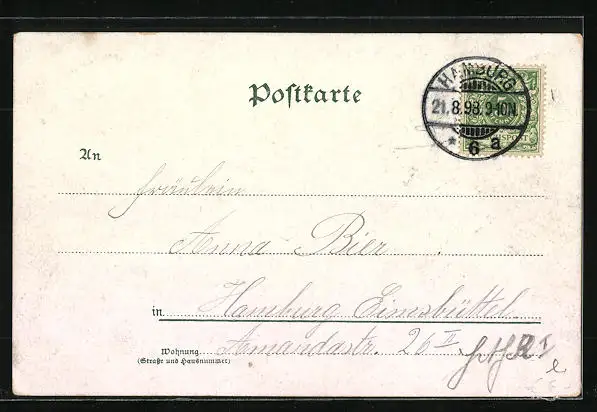 Postkarte
HAMBURG
21.8.98.9-10N.
* 6 a
USPOST
An
Fräulein
Anna Bier
in Hamburg Eimsbüttel
Wohnung Armandastr. 26 II
(Straße und Hausnummer)